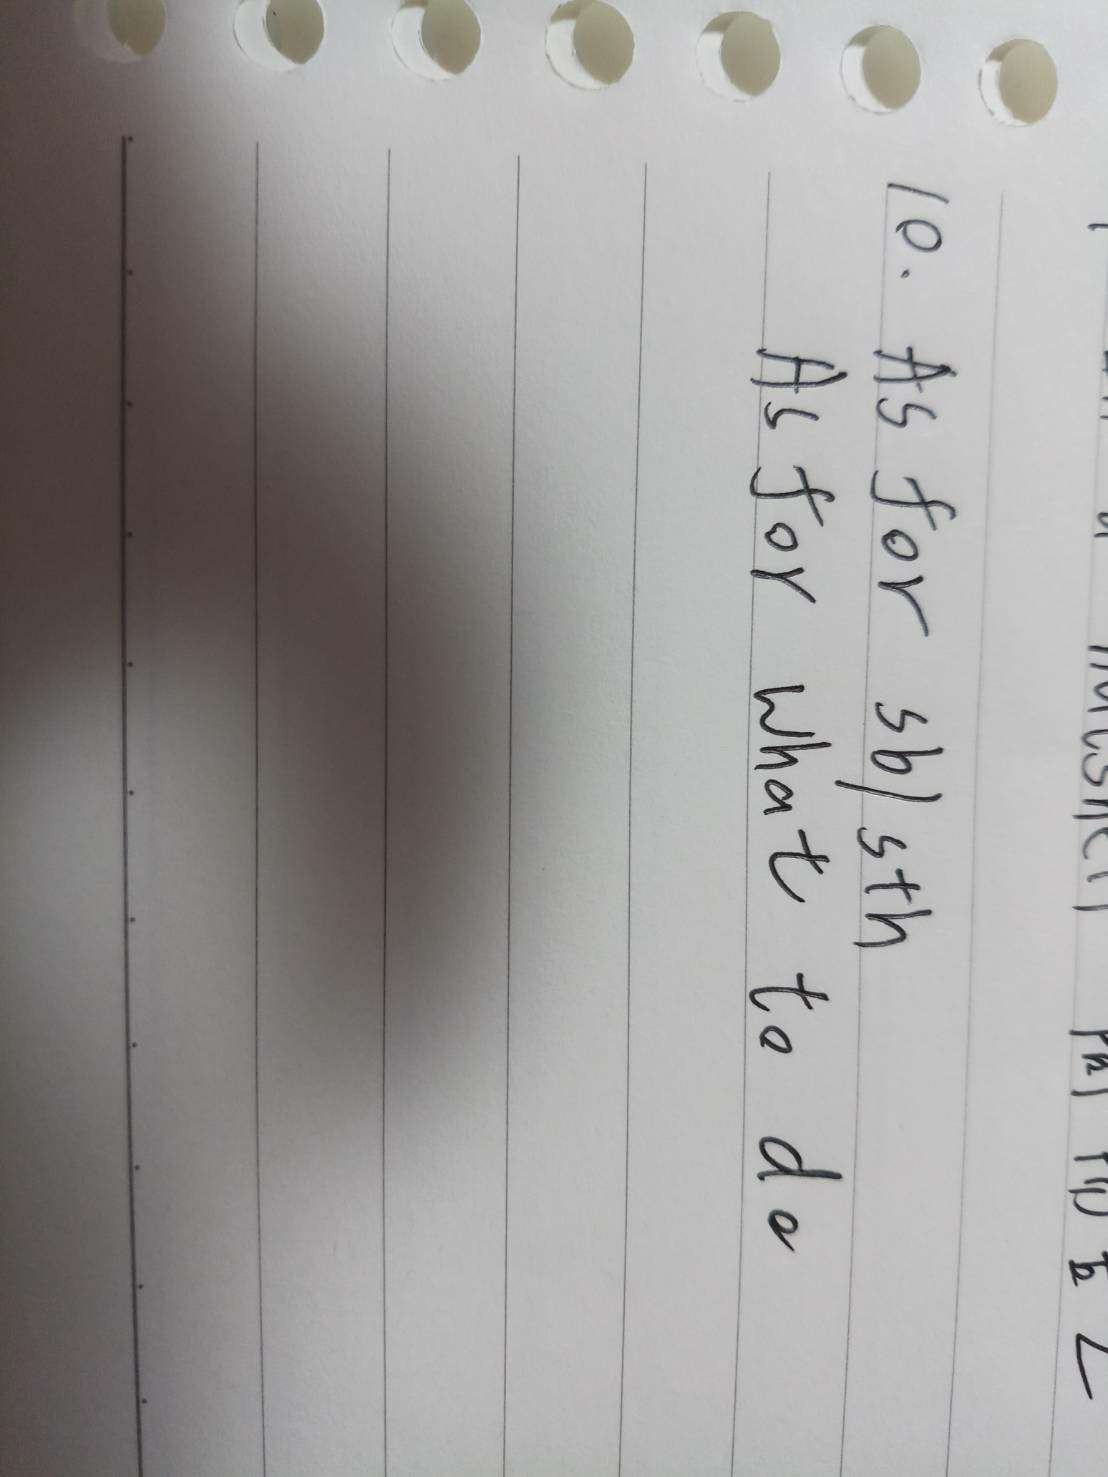 10. As for sb/sth
As for what to do